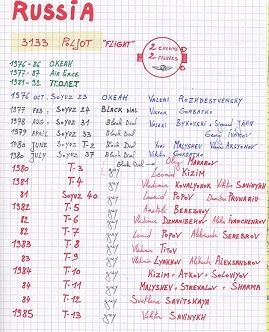 RUSSIA
3133 POLJOT "FLIGHT"
2 CROWNS
2 PUSHERS
1976-86 OKEAH
1977-87 Air Force
1981-92 ПОЛЕТ
1976 OCT. SOYUZ 23 OKEAH Valeri ROZHDESTVENSKY
1977 FEB. SOYUZ 24 BLACK DIAL Viktor GORBATKO
1978 AUG. SOYUZ 31 Black Dial Valeri BYKOVSKI + Sigmund JÄHN
1979 APRIL SOYUZ 33 Black Dial Georgi IVANOV
1980 JUNE SOYUZ T-2 Black Dial Yuri MALYSHEV Vladimir AKSYONOV
1980 JULY SOYUZ 37 Black Dial Viktor GORBATKO
1980 T-3 Black Dial Oleg MAKAROV
1981 T-4 Leonid KIZIM
81 SOYUZ 40 Vladimir KOVALYONOK Viktor SAVINYKH
1982 T-5 Leonid POPOV Dumitru PRUNARIU
82 T-6 Anatoli BEREZOVOY
82 T-7 Vladimir DZHANIBEKOV Aleks IVANCHENKOV
1983 T-8 Leonid POPOV Aleksandr SEREBROV
83 T-9 Vladimir TITOV
1984 T-10 Vladimir LYAKHOV Aleksandr ALEKSANDROV
84 T-11 KIZIM + ATKOV + SOLOVIYOV
84 T-12 MALYSHEV + STREKALOV + SHARMA
1985 T-13 Svetlana SAVITSKAYA
Viktor SAVINYKH